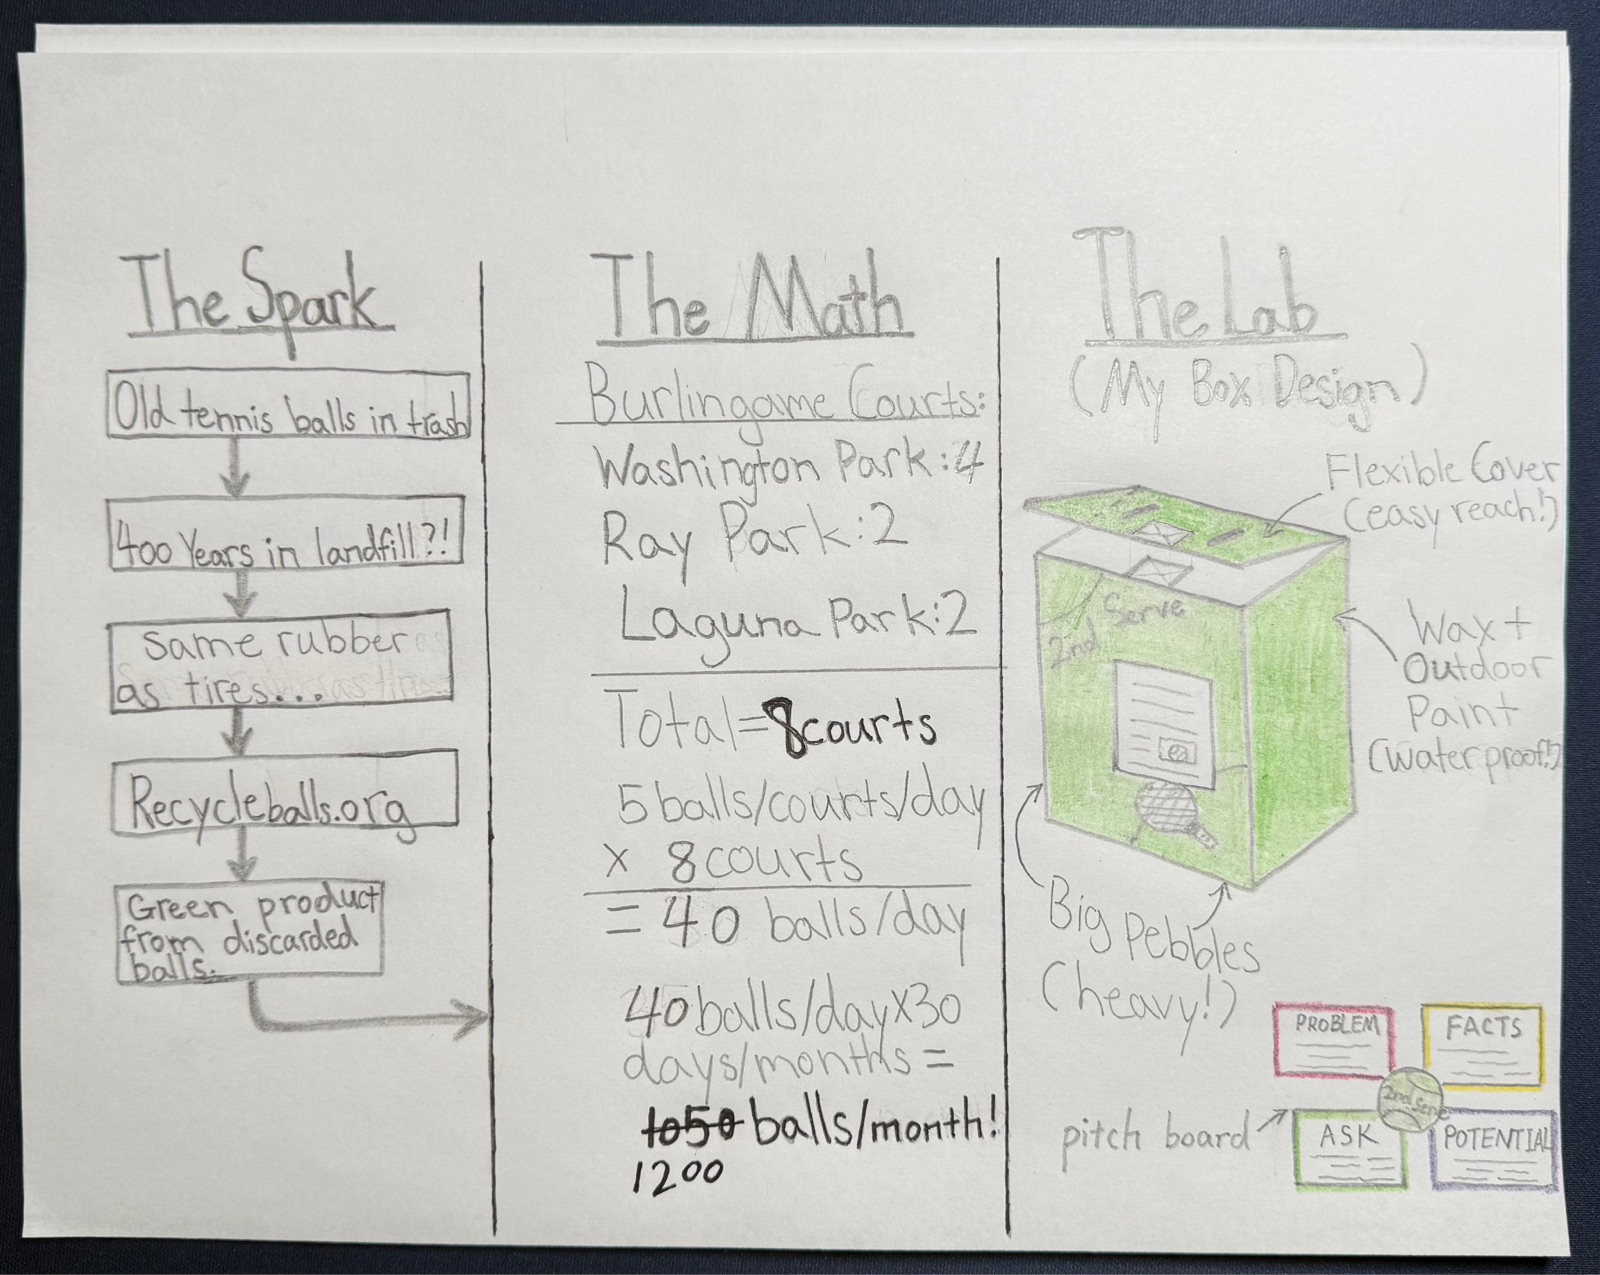 The Spark
Old tennis balls in trash
400 Years in landfill?!
same rubber
as tires...
Recycleballs.org
Green product
from discarded
balls.
The Math
Burlingame Courts:
Washington Park:4
Ray Park:2
Laguna Park:2
Total=8courts
5balls/courts/day
x 8courts
= 40 balls/day
40balls/dayx30
days/months =
1050 balls/month!
1200
The Lab
(My Box Design)
Flexible Cover
(easy reach!)
2nd Serve
Wax+
Outdoor
Paint
(Waterproof!)
Big Pebbles
(heavy!)
pitch board
PROBLEM
FACTS
2nd Serve
ASK
POTENTIAL